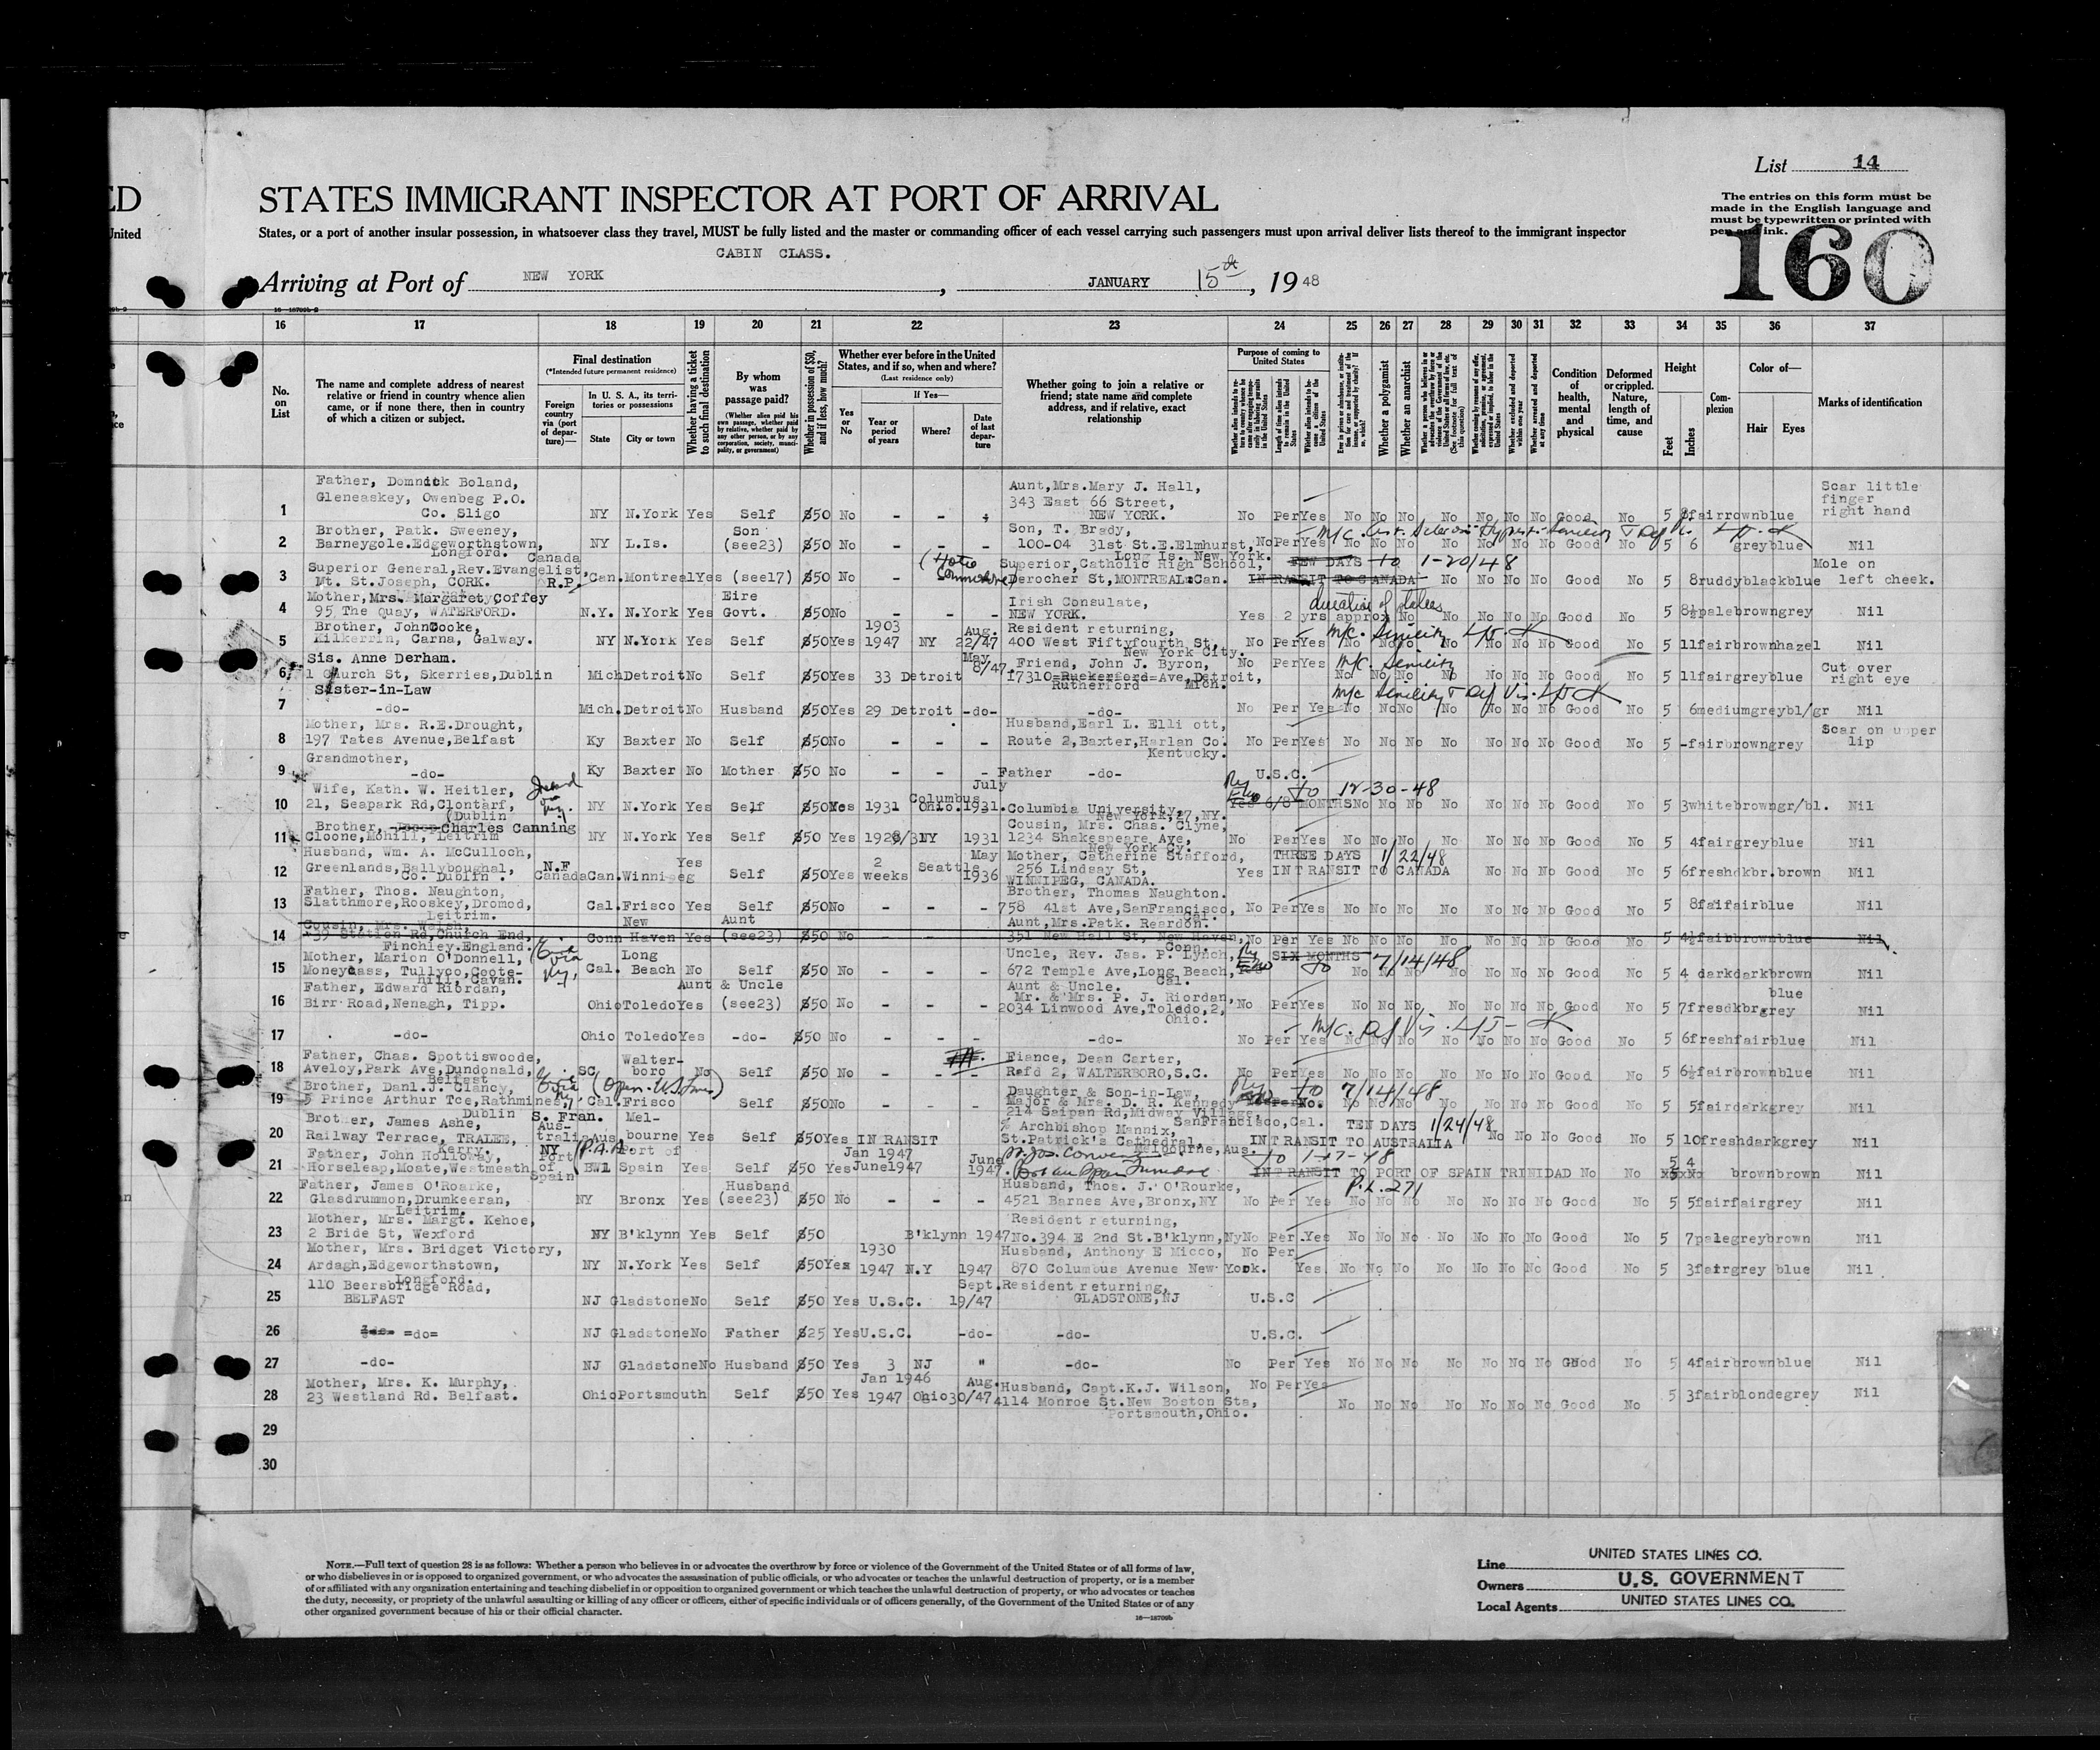 List 14
The entries on this form must be
made in the English language and
must be typewritten or printed with
pen and ink.
160
ED
STATES IMMIGRANT INSPECTOR AT PORT OF ARRIVAL
United
States, or a port of another insular possession, in whatsoever class they travel, MUST be fully listed and the master or commanding officer of each vessel carrying such passengers must upon arrival deliver lists thereof to the immigrant inspector
CABIN CLASS.
Arriving at Port of NEW YORK, JANUARY 15th, 1948
16 17 18 19 20 21 22 23 24 25 26 27 28 29 30 31 32 33 34 35 36 37
No. on List
The name and complete address of nearest relative or friend in country whence alien came, or if none there, then in country of which a citizen or subject.
Final destination
(*Intended future permanent residence)
Foreign country via (port of departure)—
In U. S. A., its territories or possessions
State City or town
Whether having a ticket to such final destination
By whom was passage paid?
(Whether alien paid his own passage, whether paid by relative, whether paid by any other person, or by any corporation, society, municipality, or government)
Whether in possession of $50, and if less, how much?
Whether ever before in the United States, and if so, when and where?
(Last residence only)
If Yes—
Yes or No
Year or period of years
Where?
Date of last departure
Whether going to join a relative or friend; state name and complete address, and if relative, exact relationship
Purpose of coming to United States
Whether a polygamist
Whether an anarchist
Condition of health, mental and physical
Deformed or crippled. Nature, length of time, and cause
Height
Feet Inches
Complexion
Color of—
Hair Eyes
Marks of identification
1 Father, Domnick Boland, Gleneaskey, Owenbeg P.O. Co. Sligo NY N.York Yes Self $50 No - - Aunt,Mrs.Mary J. Hall, 343 East 66 Street, NEW YORK. No Per Yes No No No No No No No Good No 5 Scar little finger right hand
2 Brother, Patk. Sweeney, Barneygole.Edgeworthstown, Longford. NY L.Is. Son (see23) $50 No - - - Son, T. Brady, 100-04 31st St.E.Elmhurst, Long Is. New York. No Per Yes No No No No No No No Good No 5 6 grey blue Nil
3 Superior General,Rev.Evangelist, Mt. St.Joseph, CORK. Canada R.P. Can. Montreal Yes (see17) $50 No - Superior,Catholic High School, Derocher St,MONTREAL.Can. FEW DAYS to 1-20/48 IN TRANSIT TO CANADA No No No No No Good No 5 8 ruddy black blue Mole on left cheek.
4 Mother, Mrs. Margaret Coffey 95 The Quay, WATERFORD. N.Y. N.York Yes Eire Govt. $50 No - - - Irish Consulate, NEW YORK. Yes 2 yrs approx duration of status No No No No No No Good No 5 8½ pale brown grey Nil
5 Brother, John Cooke, Kilkerrin, Carna, Galway. NY N.York Yes Self $50 Yes 1903 1947 NY Aug. 22/47 Resident returning, 400 West Fiftyfourth St, New York City. No Per Yes M/c. Senility No No No No No No No Good No 5 11 fair brown hazel Nil
6 Sis. Anne Derham. 1 Church St, Skerries,Dublin Mich Detroit No Self $50 Yes 33 Detroit May 8/47 Friend, John J. Byron, 17310 Ruckerford Ave,Detroit, Rutherford Mich. No Per Yes M/c Senility No No No No No No No Good No 5 11 fair grey blue Cut over right eye
7 Sister-in-Law -do- Mich. Detroit No Husband $50 Yes 29 Detroit -do- -do- No Per Yes M/c Senility & Def Vis. No No No No No No No Good No 5 6 medium grey bl/gr Nil
8 Mother, Mrs. R.E.Drought, 197 Tates Avenue,Belfast Ky Baxter No Self $50 No - - - Husband,Earl L. Elliott, Route 2,Baxter,Harlan Co. Kentucky. No Per Yes No No No No No No No Good No 5 - fair brown grey Scar on upper lip
9 Grandmother, -do- Ky Baxter No Mother $50 No - - - Father -do- U.S.C.
10 Wife, Kath. W. Heitler, 21, Seapark Rd,Clontarf, Dublin NY N.York Yes Self $50 Yes 1931 Columbus Ohio. July 1931. Columbia University, New York,27,NY. Yes 6/8 MONTHS to 12-30-48 No No No No No No No Good No 5 3 white brown gr/bl. Nil
11 Brother, Charles Canning Cloone,Mohill, Leitrim NY N.York Yes Self $50 Yes 1926/31 NY 1931 Cousin, Mrs. Chas. Clyne, 1234 Shakespeare Ave, New York Cy. No Per Yes No No No No No No No Good No 5 4 fair grey blue Nil
12 Husband, Wm. A. McCulloch, Greenlands,Ballyboughal, Co. Dublin. N.F Canada Can. Winnipeg Yes Self $50 Yes 2 weeks Seattle May 1936 Mother, Catherine Stafford, 256 Lindsay St, WINNIPEG, CANADA. Yes THREE DAYS 1/22/48 IN TRANSIT TO CANADA No No No Good No 5 6 fresh dkbr. brown Nil
13 Father, Thos. Naughton, Slatthmore,Rooskey,Dromod, Leitrim. Cal. Frisco Yes Self $50 No - - - Brother, Thomas Naughton. 758 41st Ave,SanFrancisco, Cal. No Per Yes No No No No No No No Good No 5 8 fair fair blue Nil
14 Cousin, Mrs. Walsh, 139 Station Rd,Church End, Finchley.England. Conn New Haven Yes Aunt (see23) $50 No - - - Aunt,Mrs.Patk. Reardon. 351 New Hall St, New Haven, Conn. No Per Yes No No No No No No No Good No 5 4½ fair brown blue Nil
15 Mother, Marion O'Donnell, Moneycass, Tullyco,Cootehill, Cavan. Cal. Long Beach No Self $50 No - - - Uncle, Rev. Jas. P. Lynch, 672 Temple Ave,Long Beach, Cal. SIX MONTHS to 7/14/48 No No No No No No No Good No 5 4 dark dark brown Nil
16 Father, Edward Riordan, Birr Road,Nenagh, Tipp. Ohio Toledo Yes Aunt & Uncle (see23) $50 No - - - Aunt & Uncle. Mr. & Mrs. P. J. Riordan, 2034 Linwood Ave,Toledo,2, Ohio. No Per Yes No No No No No No No Good No 5 7 fres dkbr blue grey Nil
17 -do- Ohio Toledo Yes -do- $50 No - - - -do- No Per Yes M/c. Def Vis. No No No No No No No Good No 5 6 fresh fair blue Nil
18 Father, Chas. Spottiswoode, Aveloy,Park Ave,Dundonald, Belfast SC Walterboro No Self $50 No - - Fiance, Dean Carter, Rafd 2, WALTERBORO,S.C. No Per Yes No No No No No No No Good No 5 6½ fair brown blue Nil
19 Brother, Danl.J. Clancy, 5 Prince Arthur Tce,Rathmines, Dublin Cal. Frisco Self $50 No - - - Daughter & Son-in-Law, Major & Mrs. D. R. Kennedy 214 Saipan Rd,Midway Village, SanFrancisco,Cal. to 7/14/48 No No No No No No No Good No 5 5 fair dark grey Nil
20 Brother, James Ashe, Railway Terrace, TRALEE, Kerry. S. Fran. Australia Aus. Melbourne Yes Self $50 Yes IN RANSIT % Archbishop Mannix, St.Patrick's Cathedral, Melbourne,Aus. TEN DAYS 1/24/48 IN TRANSIT TO AUSTRALIA No No No Good No 5 10 fresh dark grey Nil
21 Father, John Holloway, Horseleap,Moate,Westmeath NY Port of Spain (P.A.A. BWI Port of Spain Yes Self $50 Yes Jan 1947 June1947 June 1947. to 1-17-48 IN TRANSIT TO PORT OF SPAIN TRINIDAD No No 5 4 brown brown Nil
22 Father, James O'Roarke, Glasdrummon,Drumkeeran, Leitrim. NY Bronx Yes Husband (see23) $50 No - - - Husband, Thos. J. O'Rourke, 4521 Barnes Ave,Bronx,NY No Per Yes P.L.271 No No No No No No No Good No 5 5 fair fair grey Nil
23 Mother, Mrs. Margt. Kehoe, 2 Bride St, Wexford NY B'klynn Yes Self $50 B'klynn 1947 Resident returning, No.394 E 2nd St.B'klynn,Ny No Per Yes No No No No No No No Good No 5 7 pale grey brown Nil
24 Mother, Mrs. Bridget Victory, Ardagh,Edgeworthstown, Longford. NY N.York Yes Self $50 Yes 1930 1947 N.Y 1947 Husband, Anthony E Micco, 870 Columbus Avenue New York. No Per Yes No No No No No No No Good No 5 3 fair grey blue Nil
25 110 Beersbridge Road, BELFAST NJ Gladstone No Self $50 Yes U.S.C. Sept. 19/47 Resident returning, GLADSTONE,NJ U.S.C
26 =do= NJ Gladstone No Father $25 Yes U.S.C. -do- -do- U.S.C.
27 -do- NJ Gladstone No Husband $50 Yes 3 NJ " -do- No Per Yes No No No No No No No Good No 5 4 fair brown blue Nil
28 Mother, Mrs. K. Murphy, 23 Westland Rd. Belfast. Ohio Portsmouth Self $50 Yes Jan 1946 1947 Ohio Aug. 30/47 Husband, Capt.K.J. Wilson, 4114 Monroe St.New Boston Sta, Portsmouth,Ohio. No Per Yes No No No No No No No Good No 5 3 fair blonde grey Nil
29
30
NOTE.—Full text of question 28 is as follows: Whether a person who believes in or advocates the overthrow by force or violence of the Government of the United States or of all forms of law,
or who disbelieves in or is opposed to organized government, or who advocates the assassination of public officials, or who advocates or teaches the unlawful destruction of property, or is a member
of or affiliated with any organization entertaining and teaching disbelief in or opposition to organized government or which teaches the unlawful destruction of property, or who advocates or teaches
the duty, necessity, or propriety of the unlawful assaulting or killing of any officer or officers, either of specific individuals or of officers generally, of the Government of the United States or of any
other organized government because of his or their official character.
Line UNITED STATES LINES CO.
Owners U.S. GOVERNMENT
Local Agents UNITED STATES LINES CO.